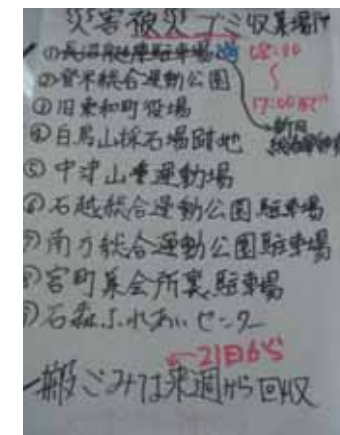 災害被災ゴミ収集場所
①長沼 駐車場 08:30
〜
②登米総合運動公園
17:00まで
③旧東和町役場
④白鳥山採石場跡地
⑤中津山 運動場
⑥石越総合運動公園駐車場
⑦南方総合運動公園駐車場
⑧宮町集会所裏駐車場
⑨石森ふれあいセンター
←21日から
一般ごみは来週から回収